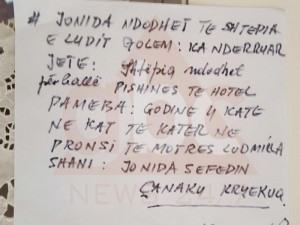 # JONIDA NDODHET TE SHTEPIA
E LUDIT GOLEM: KA NDERRUAR
JETE: Shtëpia ndodhet
përballë PISHINES TE HOTEL
PAMEBA: GODINE 4 KATE
NE KAT TE KATER NE
PRONSI TE MOTRES LUDMILLA
SHANI: JONIDA SEFEDIN
ÇANAKU KRYEKUQ
NEWS